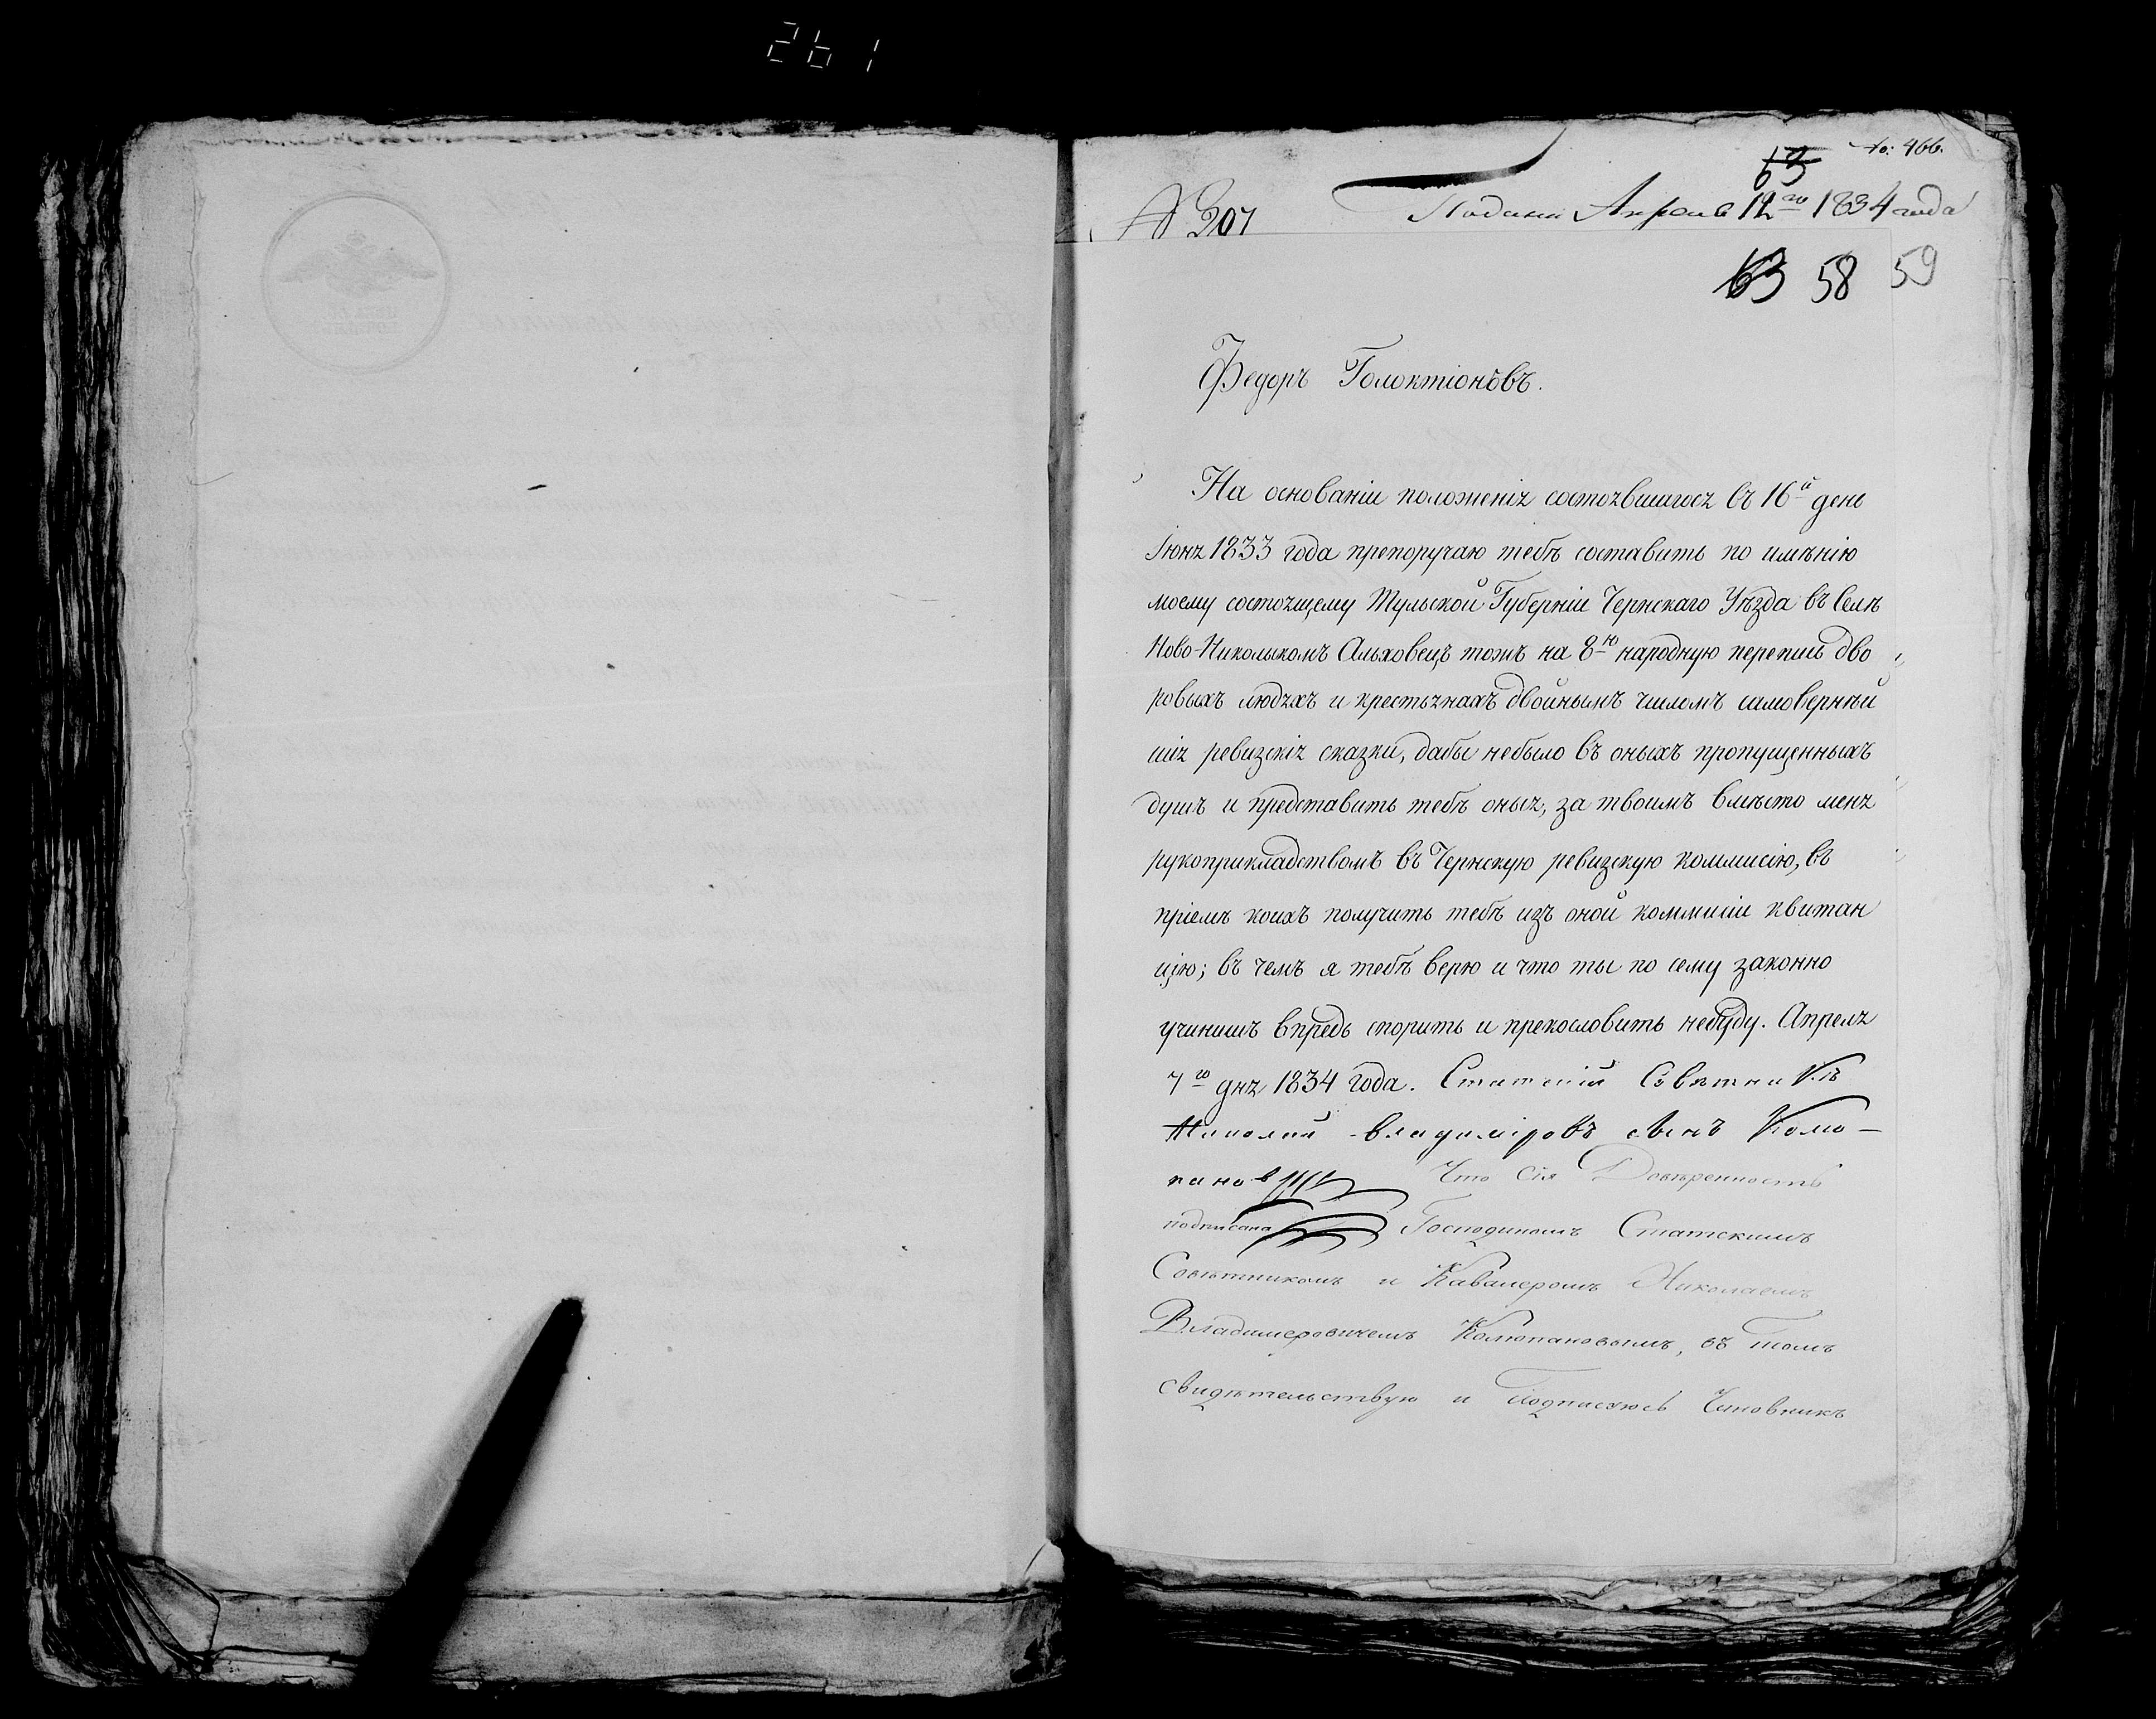 261
№: 466.
63
№ 207 Подана Апреля 12го 1834 года
63 58 59
Федоръ Голоктіоновъ.
На основаніи положенія состоявшагося въ 16й день
Іюня 1833 года препоручаю тебѣ составить по имѣнію
моему состоящему Тульской Губерніи Чернскаго Уѣзда въ Селѣ
Ново-Никольскомъ Альховецъ тожъ на 8ю народную перепись дво
ровыхъ людяхъ и крестьянахъ двойнымъ числомъ самовернѣй
шія ревизскія сказки, дабы небыло въ оныхъ пропущенныхъ
душъ и представить тебѣ оныя, за твоимъ вмѣсто меня
рукоприкладствомъ въ Чернскую ревизскую коммисію, въ
пріемѣ коихъ получить тебѣ изъ оной коммисіи квитан
цію; въ чемъ я тебѣ верю и что ты по сему законно
учинишъ впредь спорить и прекословить небуду. Апреля
7го дня 1834 года. Статскій Советникъ
Николай Владиміровъ сынъ Колю-
пановъ Что сія Довѣренность
подписана Господиномъ Статскимъ
Совѣтникомъ и Кавалеромъ Николаемъ
Владимеровичемъ Колюпановымъ, въ томъ
свидѣтельствую и Подписуюсь Чиновникъ